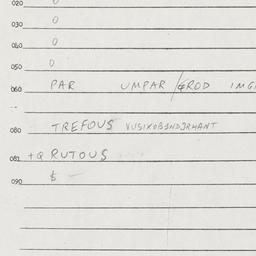 020 0
030 0
040 0
050 0
060 PAR UMPAR /GROD IMG
080 TREFOUS
081 +Q RUTOUS
090 $